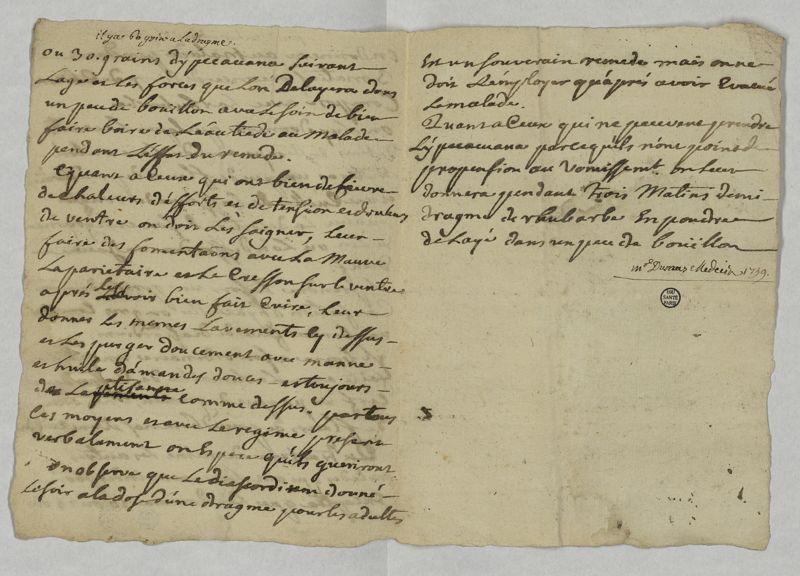 il y a 60 grins a la dragme.
ou 30. grains d'ypecacuana suivant
Lage et les forces que lon Delayera dans
un peu de bouillon avec le soin de bien
faire boire de L'eau tiede au Malade
pendant L'effet du remede.
Equant a Ceux qui ont bien de fievre
de chaleurs d'efforts et de tension et douleurs
de ventre on doit Les saigner, Leur
faire des fomentaōns avec La Mauve
La parietaire et Le Cresson sur le ventre
aprés Les avoir bien fait Cuire, Leur
donner Les memes Lavements Cy dessus
et Les purger doucement avec manne
et huile damandes douces - et toujours
de La ptisanne comme dessus. par tous
Ces moyens et avec Le regime present
verbalement on Espere quils gueriront
On observe que Le diascordium donné
Le soir a la dose d'une dragme pour les adultes
Est un souverain remede mais on ne
doit L'employer qu'aprés avoir Evacué
Le malade.
Quant a Ceux qui ne peuvent prendre
L'ypecacuana parcequ'ils nont point de
propension au Vomissemt. on Leur
donnera pendant Trois Matins demi
dragme de rhubarbe En poudre
delayé dans un peu de bouillon
Medecin 1739.
BIU
SANTÉ
PARIS